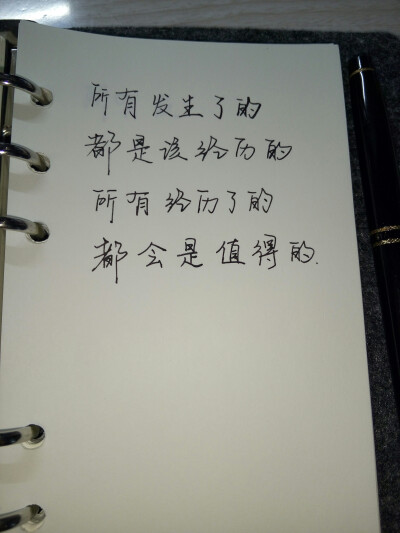 所有发生了的
都是该经历的
所有经历了的
都会是值得的.